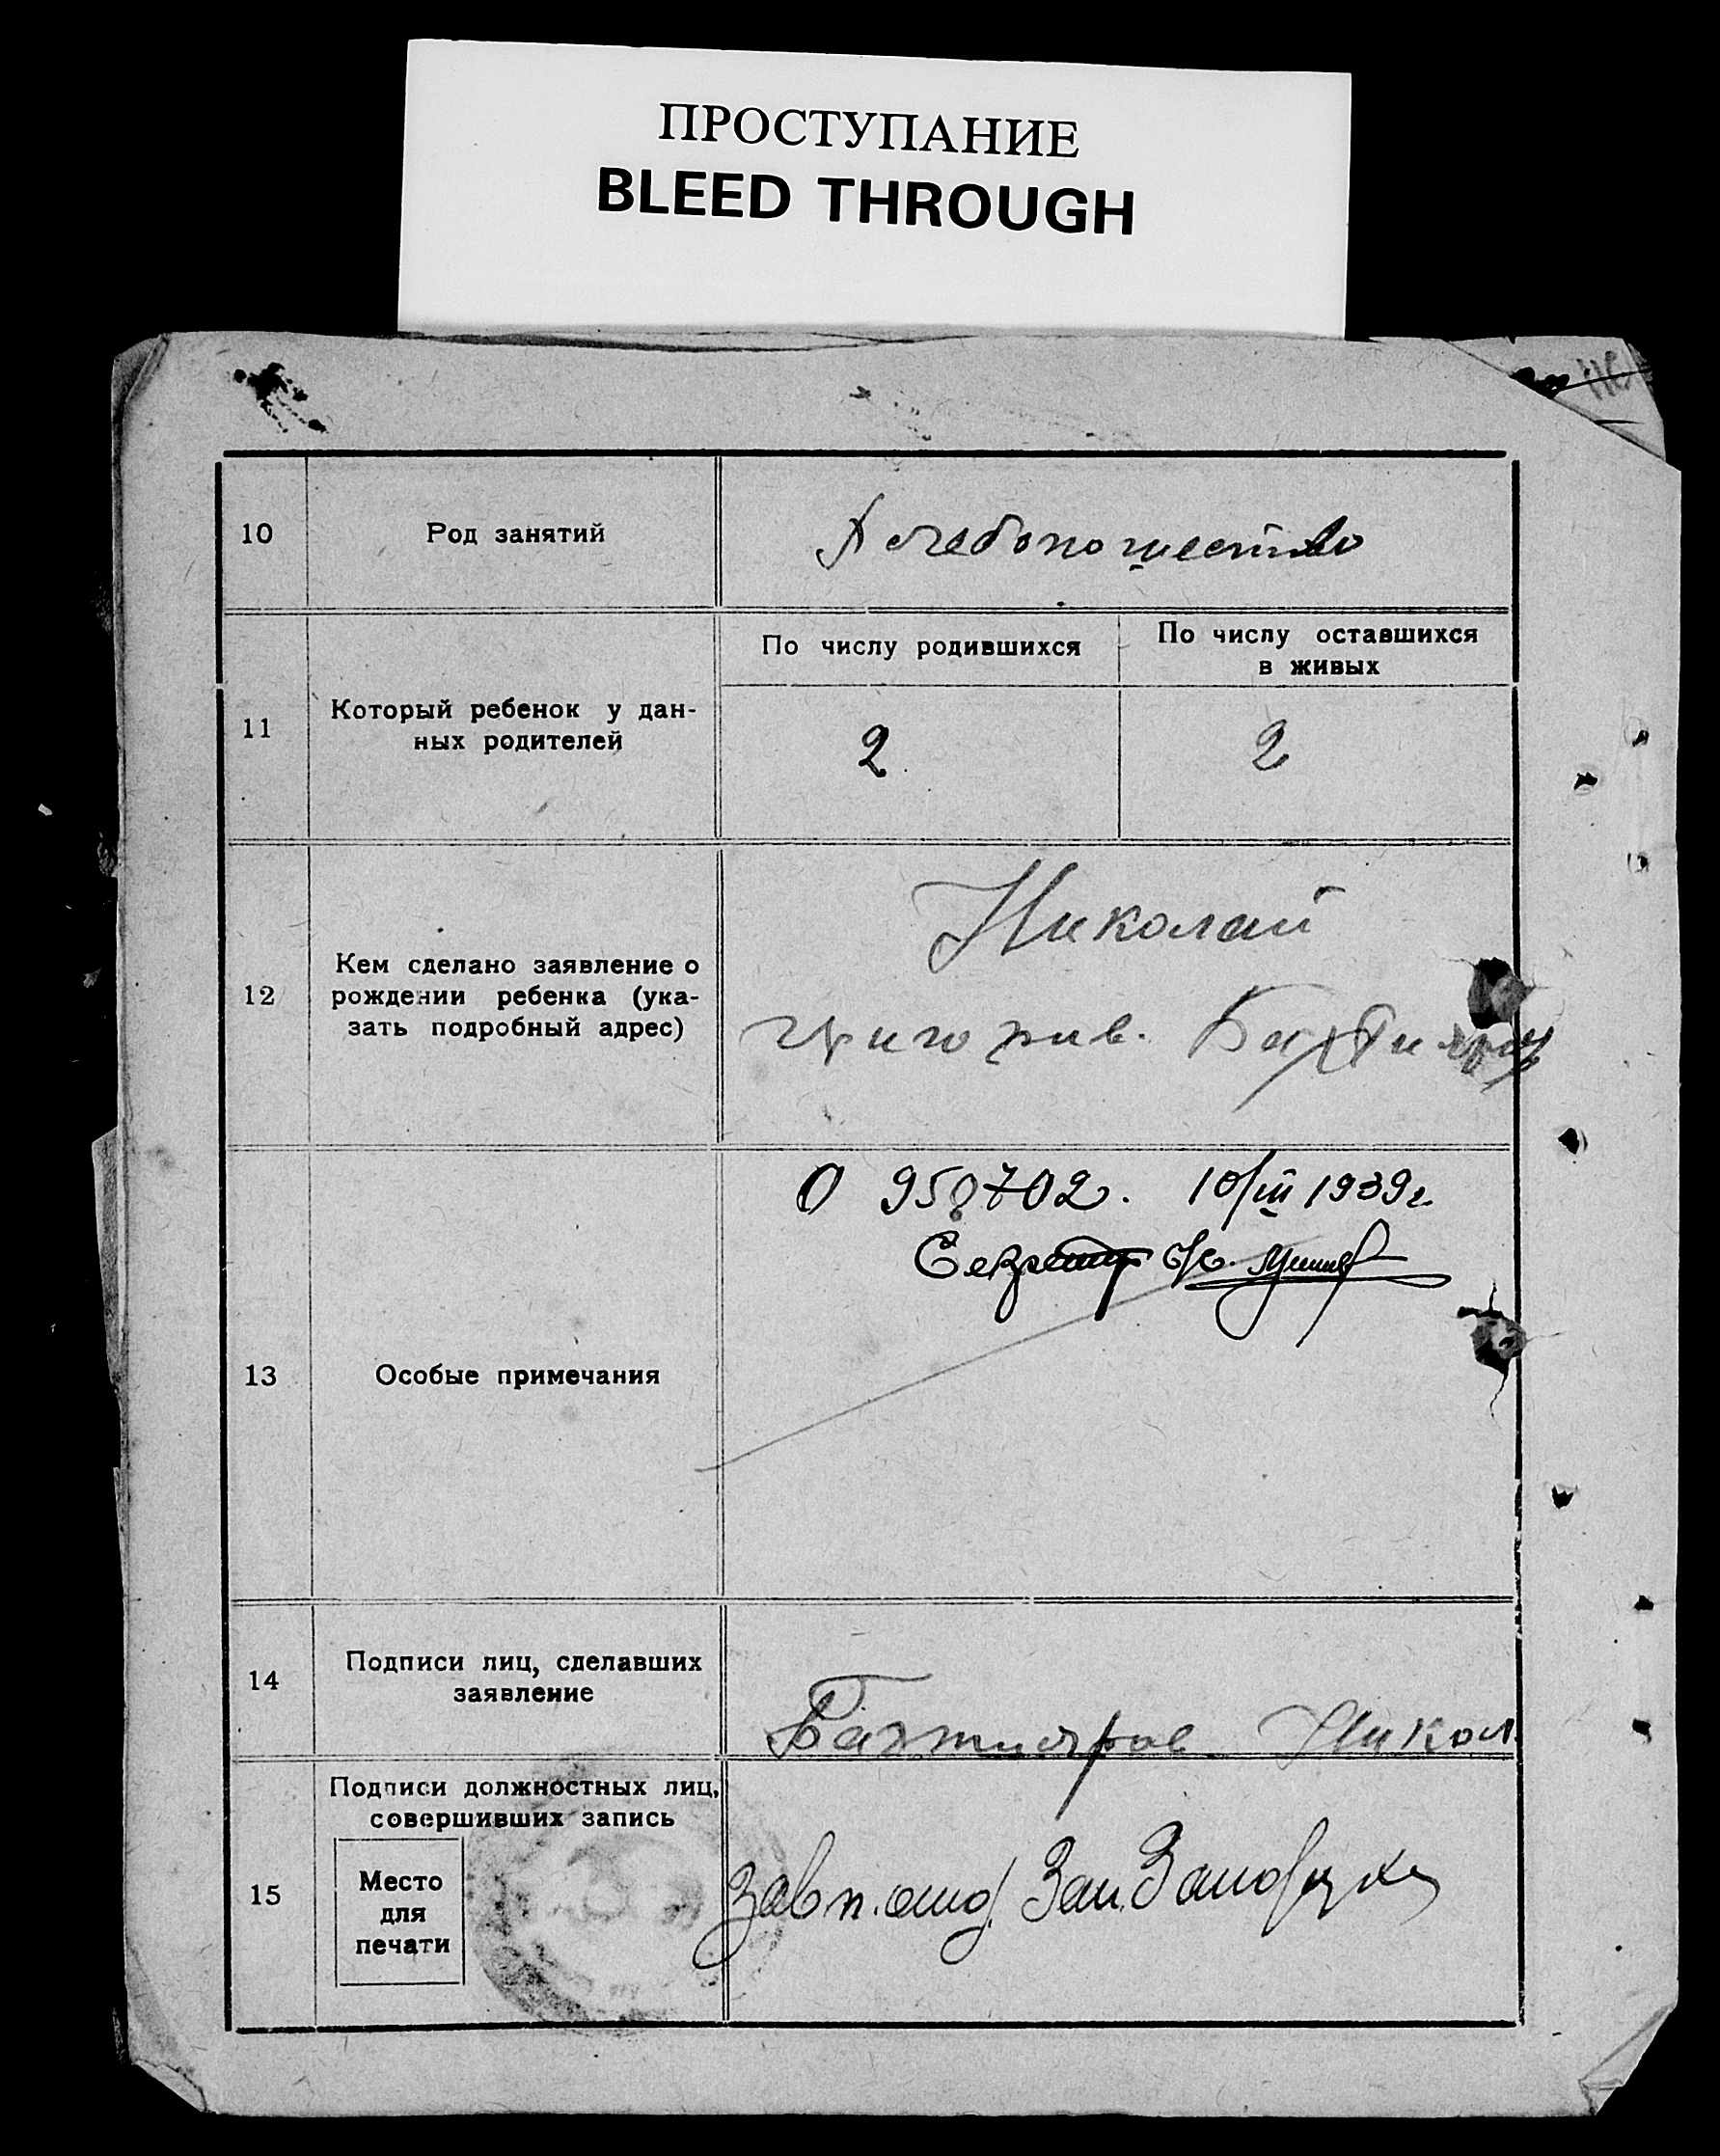 ПРОСТУПАНИЕ
BLEED THROUGH
10
Род занятий
Хлебопошество
11
Который ребенок у дан-
ных родителей
По числу родившихся
По числу оставшихся
в живых
2
2
12
Кем сделано заявление о
рождении ребенка (ука-
зать подробный адрес)
Николай
Григорив. Бахтияров
13
Особые примечания
О 958702. 10/III 1939г.
Секретар
14
Подписи лиц, сделавших
заявление
Бахтияров Никол.
15
Подписи должностных лиц,
совершивших запись
Место
для
печати
Зав п. отд.